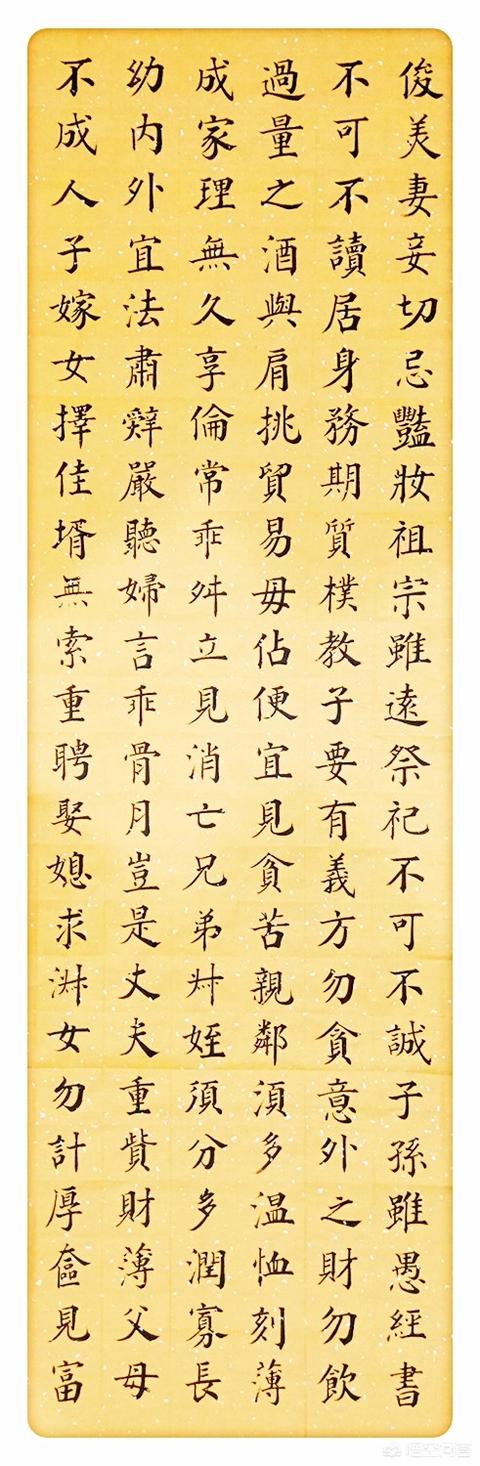 俊美妻妾切忌豔妝祖宗雖遠祭祀不可不誠子孫雖愚經書
不可不讀居身務期質樸教子要有義方勿貪意外之財勿飲
過量之酒與肩挑貿易毋佔便宜見貧苦親鄰須多温恤刻薄
成家理無久享倫常乖舛立見消亡兄弟叔姪須分多潤寡長
幼内外宜法肅辭嚴聽婦言乖骨月豈是丈夫重貲財薄父母
不成人子嫁女擇佳壻無索重聘娶媳求淑女勿計厚奩見富
悟空问答